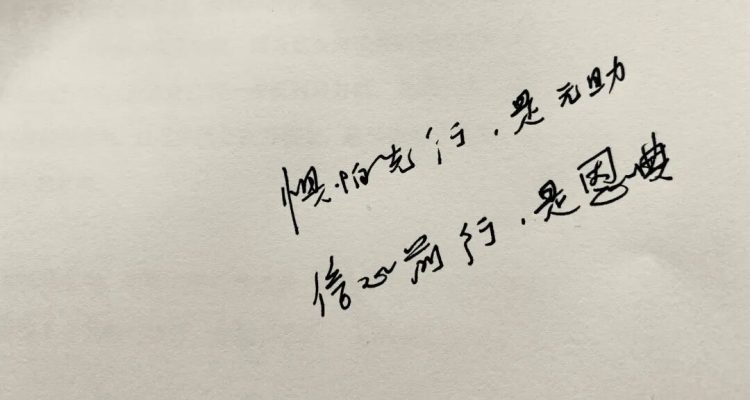 惧怕先行，是无助
信心前行，是恩典